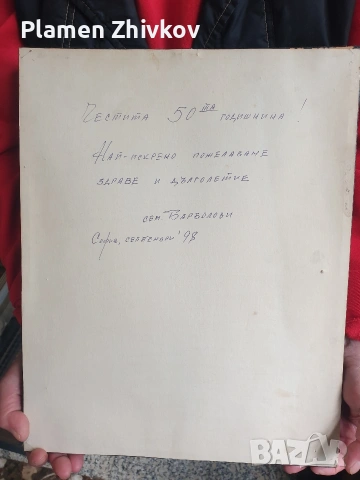 Plamen Zhivkov
Честита 50та годишнина!
Най-искрено пожелаваме
здраве и дълголетие
сем. Варволови
София, септември '98
BAZAR